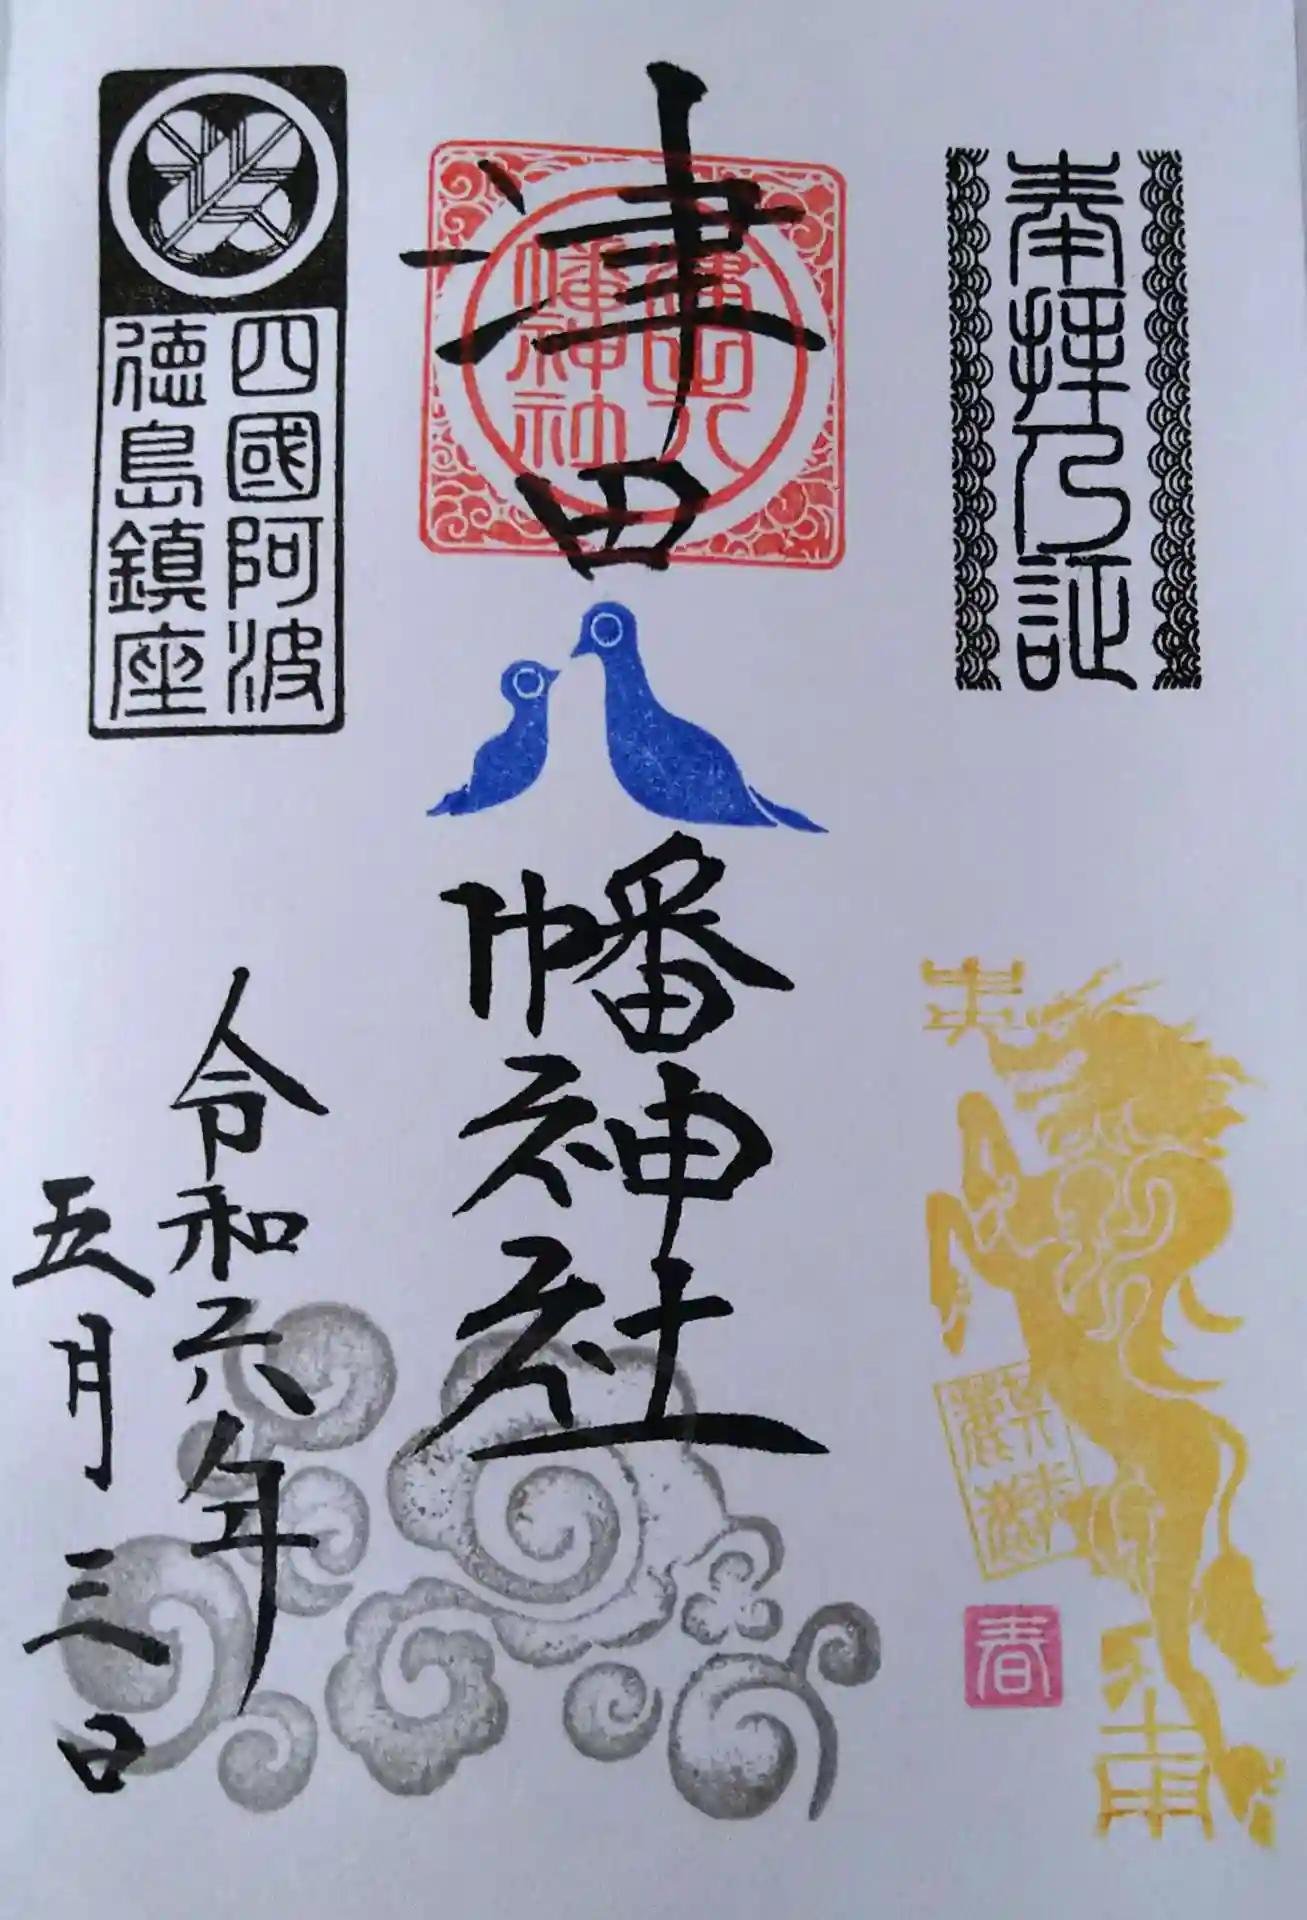 奉拝之証
春
津田
八幡神社
津田八
幡神社
四國阿波
徳島鎮座
令和六年
五月三日